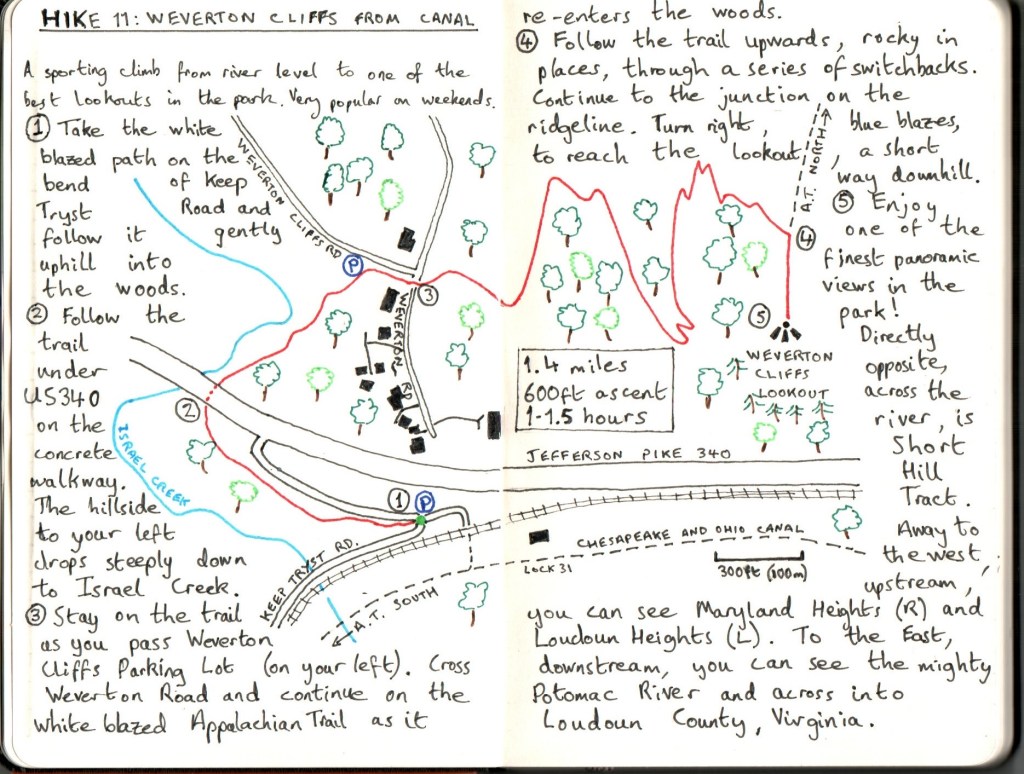 HIKE 11: WEVERTON CLIFFS FROM CANAL
A sporting climb from river level to one of the
best lookouts in the park. Very popular on weekends.
① Take the white
blazed path on the
bend of Keep
Tryst Road and
follow it gently
uphill into
the woods.
② Follow the
trail
under
US340
on the
concrete
walkway.
The hillside
to your left
drops steeply down
to Israel Creek.
③ Stay on the trail
as you pass Weverton
Cliffs Parking Lot (on your left). Cross
Weverton Road and continue on the
white blazed Appalachian Trail as it
re-enters the woods.
④ Follow the trail upwards, rocky in
places, through a series of switchbacks.
Continue to the junction on the
ridgeline. Turn right, blue blazes,
to reach the lookout, a short
way downhill.
⑤ Enjoy
one of the
finest panoramic
views in the
park!
Directly
opposite,
across the
river, is
Short
Hill
Tract.
Away to
the west,
upstream,
you can see Maryland Heights (R) and
Loudoun Heights (L). To the East,
downstream, you can see the mighty
Potomac River and across into
Loudoun County, Virginia.
WEVERTON CLIFFS RD
P
③
WEVERTON RD
②
ISRAEL CREEK
① P
KEEP TRYST RD.
A.T. SOUTH
A.T. NORTH
④
⑤
WEVERTON
CLIFFS
LOOKOUT
1.4 miles
600ft ascent
1-1.5 hours
JEFFERSON PIKE 340
CHESAPEAKE AND OHIO CANAL
LOCK 31
300ft (100m)